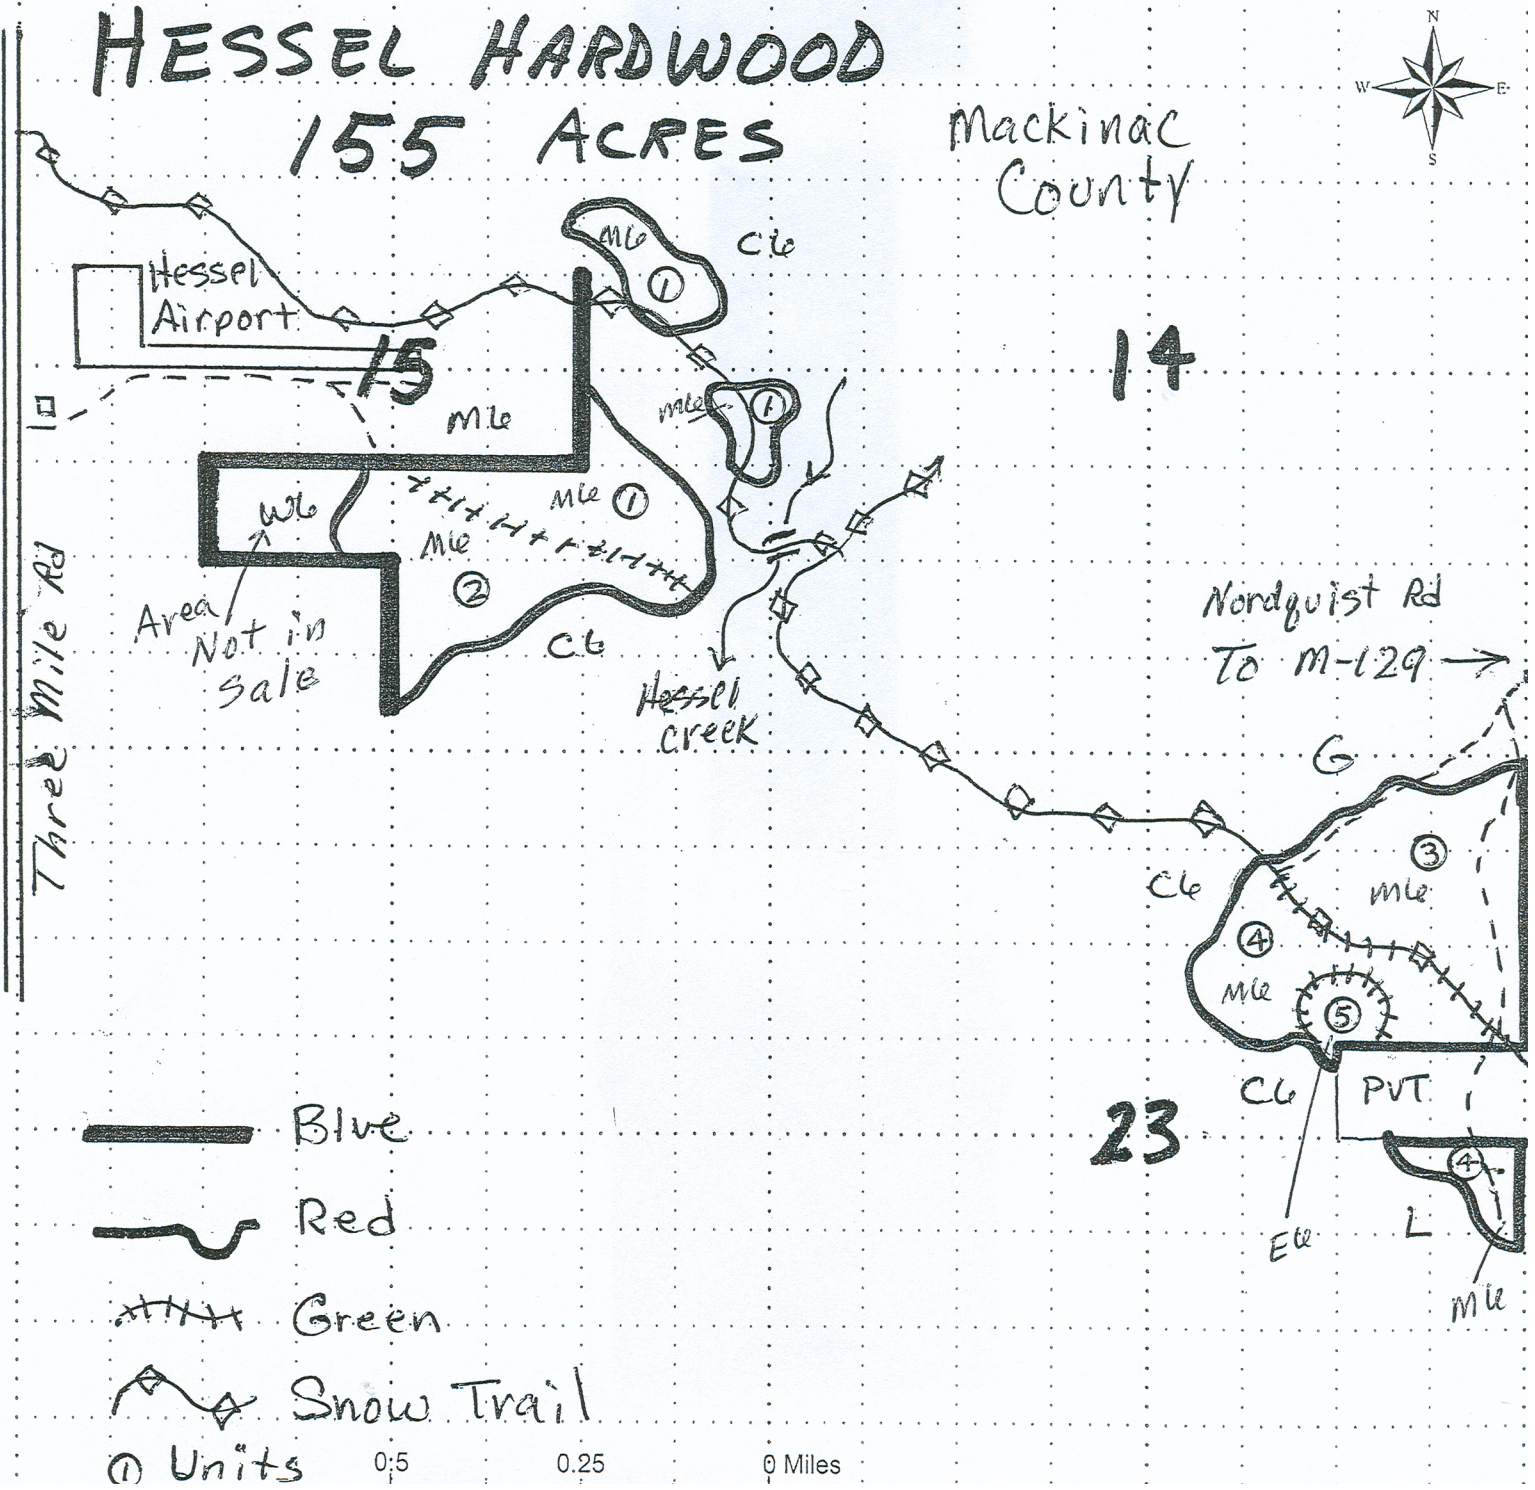 HESSEL HARDWOOD
155 ACRES
Mackinac
County
N
W E
S
M6
1
C6
Hessel
Airport
15
14
M6
M6
1
M6
1
W6
M6
2
Area
Not in
Sale
C6
Three Mile Rd
Hessel
Creek
Nordquist Rd
To M-129
G
3
M6
C6
4
M6
5
C6
PVT
23
4
L
E6
M6
Blue
Red
Green
Snow Trail
1 Units
0.5 0.25 0 Miles